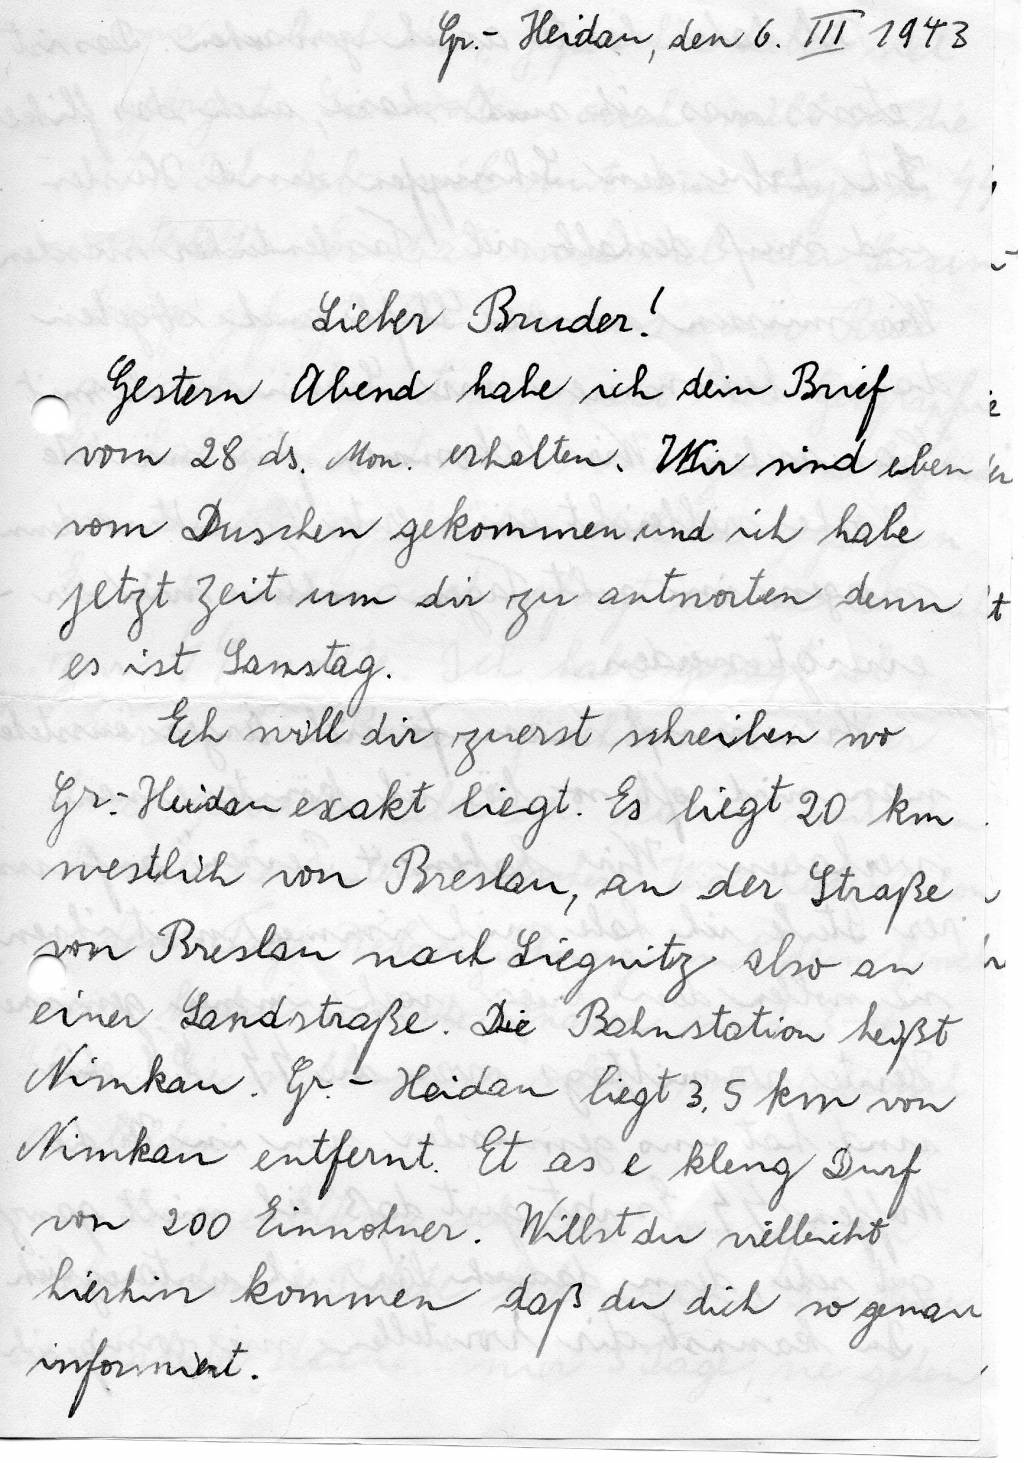 Gr.- Heidau, den 6. III 1943
Lieber Bruder!
Gestern Abend habe ich dein Brief
vom 28 ds. Mon. erhalten. Wir sind eben
vom Duschen gekommen und ich habe
jetzt Zeit um dir zu antworten denn
es ist Samstag.
Ich will dir zuerst schreiben wo
Gr.- Heidau exakt liegt. Es liegt 20 km
westlich von Breslau, an der Straße
von Breslau nach Liegnitz also an
einer Landstraße. Die Bahnstation heißt
Nimkau. Gr.- Heidau liegt 3,5 km von
Nimkau entfernt. Et as e kleng Durf
von 200 Einwohner. Willst du vielleicht
hierhin kommen daß du dich so genau
informiert.